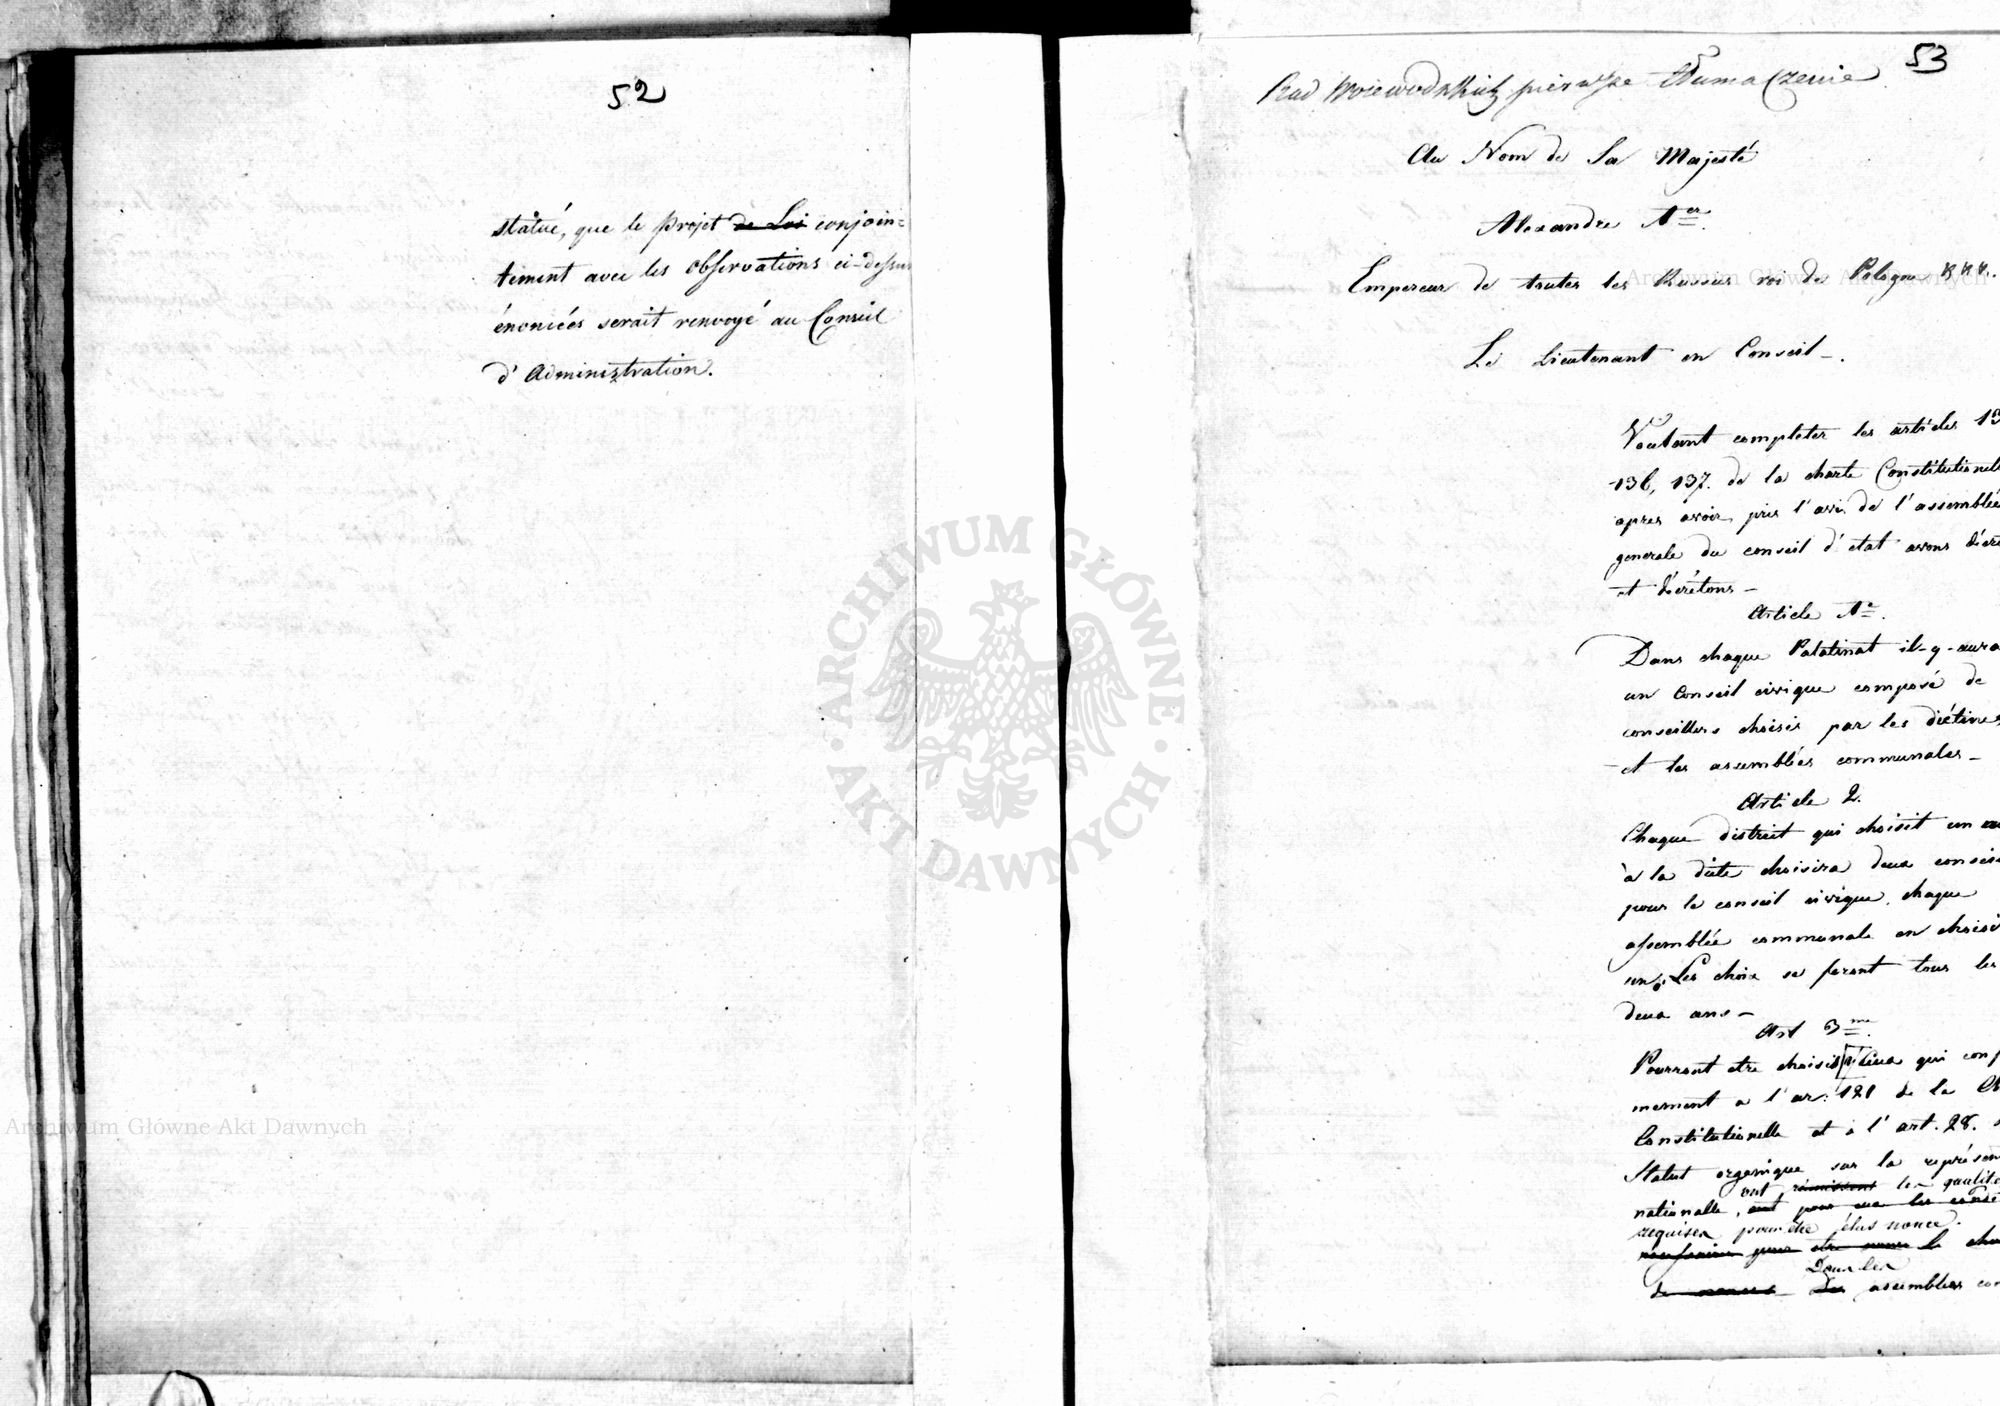 52
statué, que le projet de Loi conjoin=
tement avec les observations ci-dessus
énoncées serait renvoyé au Conseil
d'Administration.
53
Rad Woiewodzkich pierwsze tłumaczenie
Au Nom de Sa Majesté
Alexandre 1er
Empereur de toutes les Russies roi de Pologne
Le Lieutenant en Conseil -.
Voulant completer les articles
136, 137. de la charte Constitutionelle
apres avoir pris l'avis de l'assemblée
generale du conseil d'etat avons
et décrétons -
Article 1e.
Dans chaque Palatinat il-y-aura
un Conseil civique composé de
conseillers choisis par les diétines
et les assemblées communales -
Article 2.
Chaque district qui choisit un
à la diète choisira deux
pour le conseil civique, chaque
assemblée communale en
un. Les choix se feront tous les
deux ans -
Art 3me.
Pourront etre choisis ceux qui
mement a l'ar: 121 de la
Constitutionelle et à l'art. 28.
Statut organique sur la
ont réunissent les
nationalle, ont pour
requises pour etre élus nonce.
pour etre nonce
Dans les
de nonces Les assemblées
Archiwum Główne Akt Dawnych
Archiwum Główne Akt Dawnych
ARCHIWUM GŁÓWNE AKT DAWNYCH